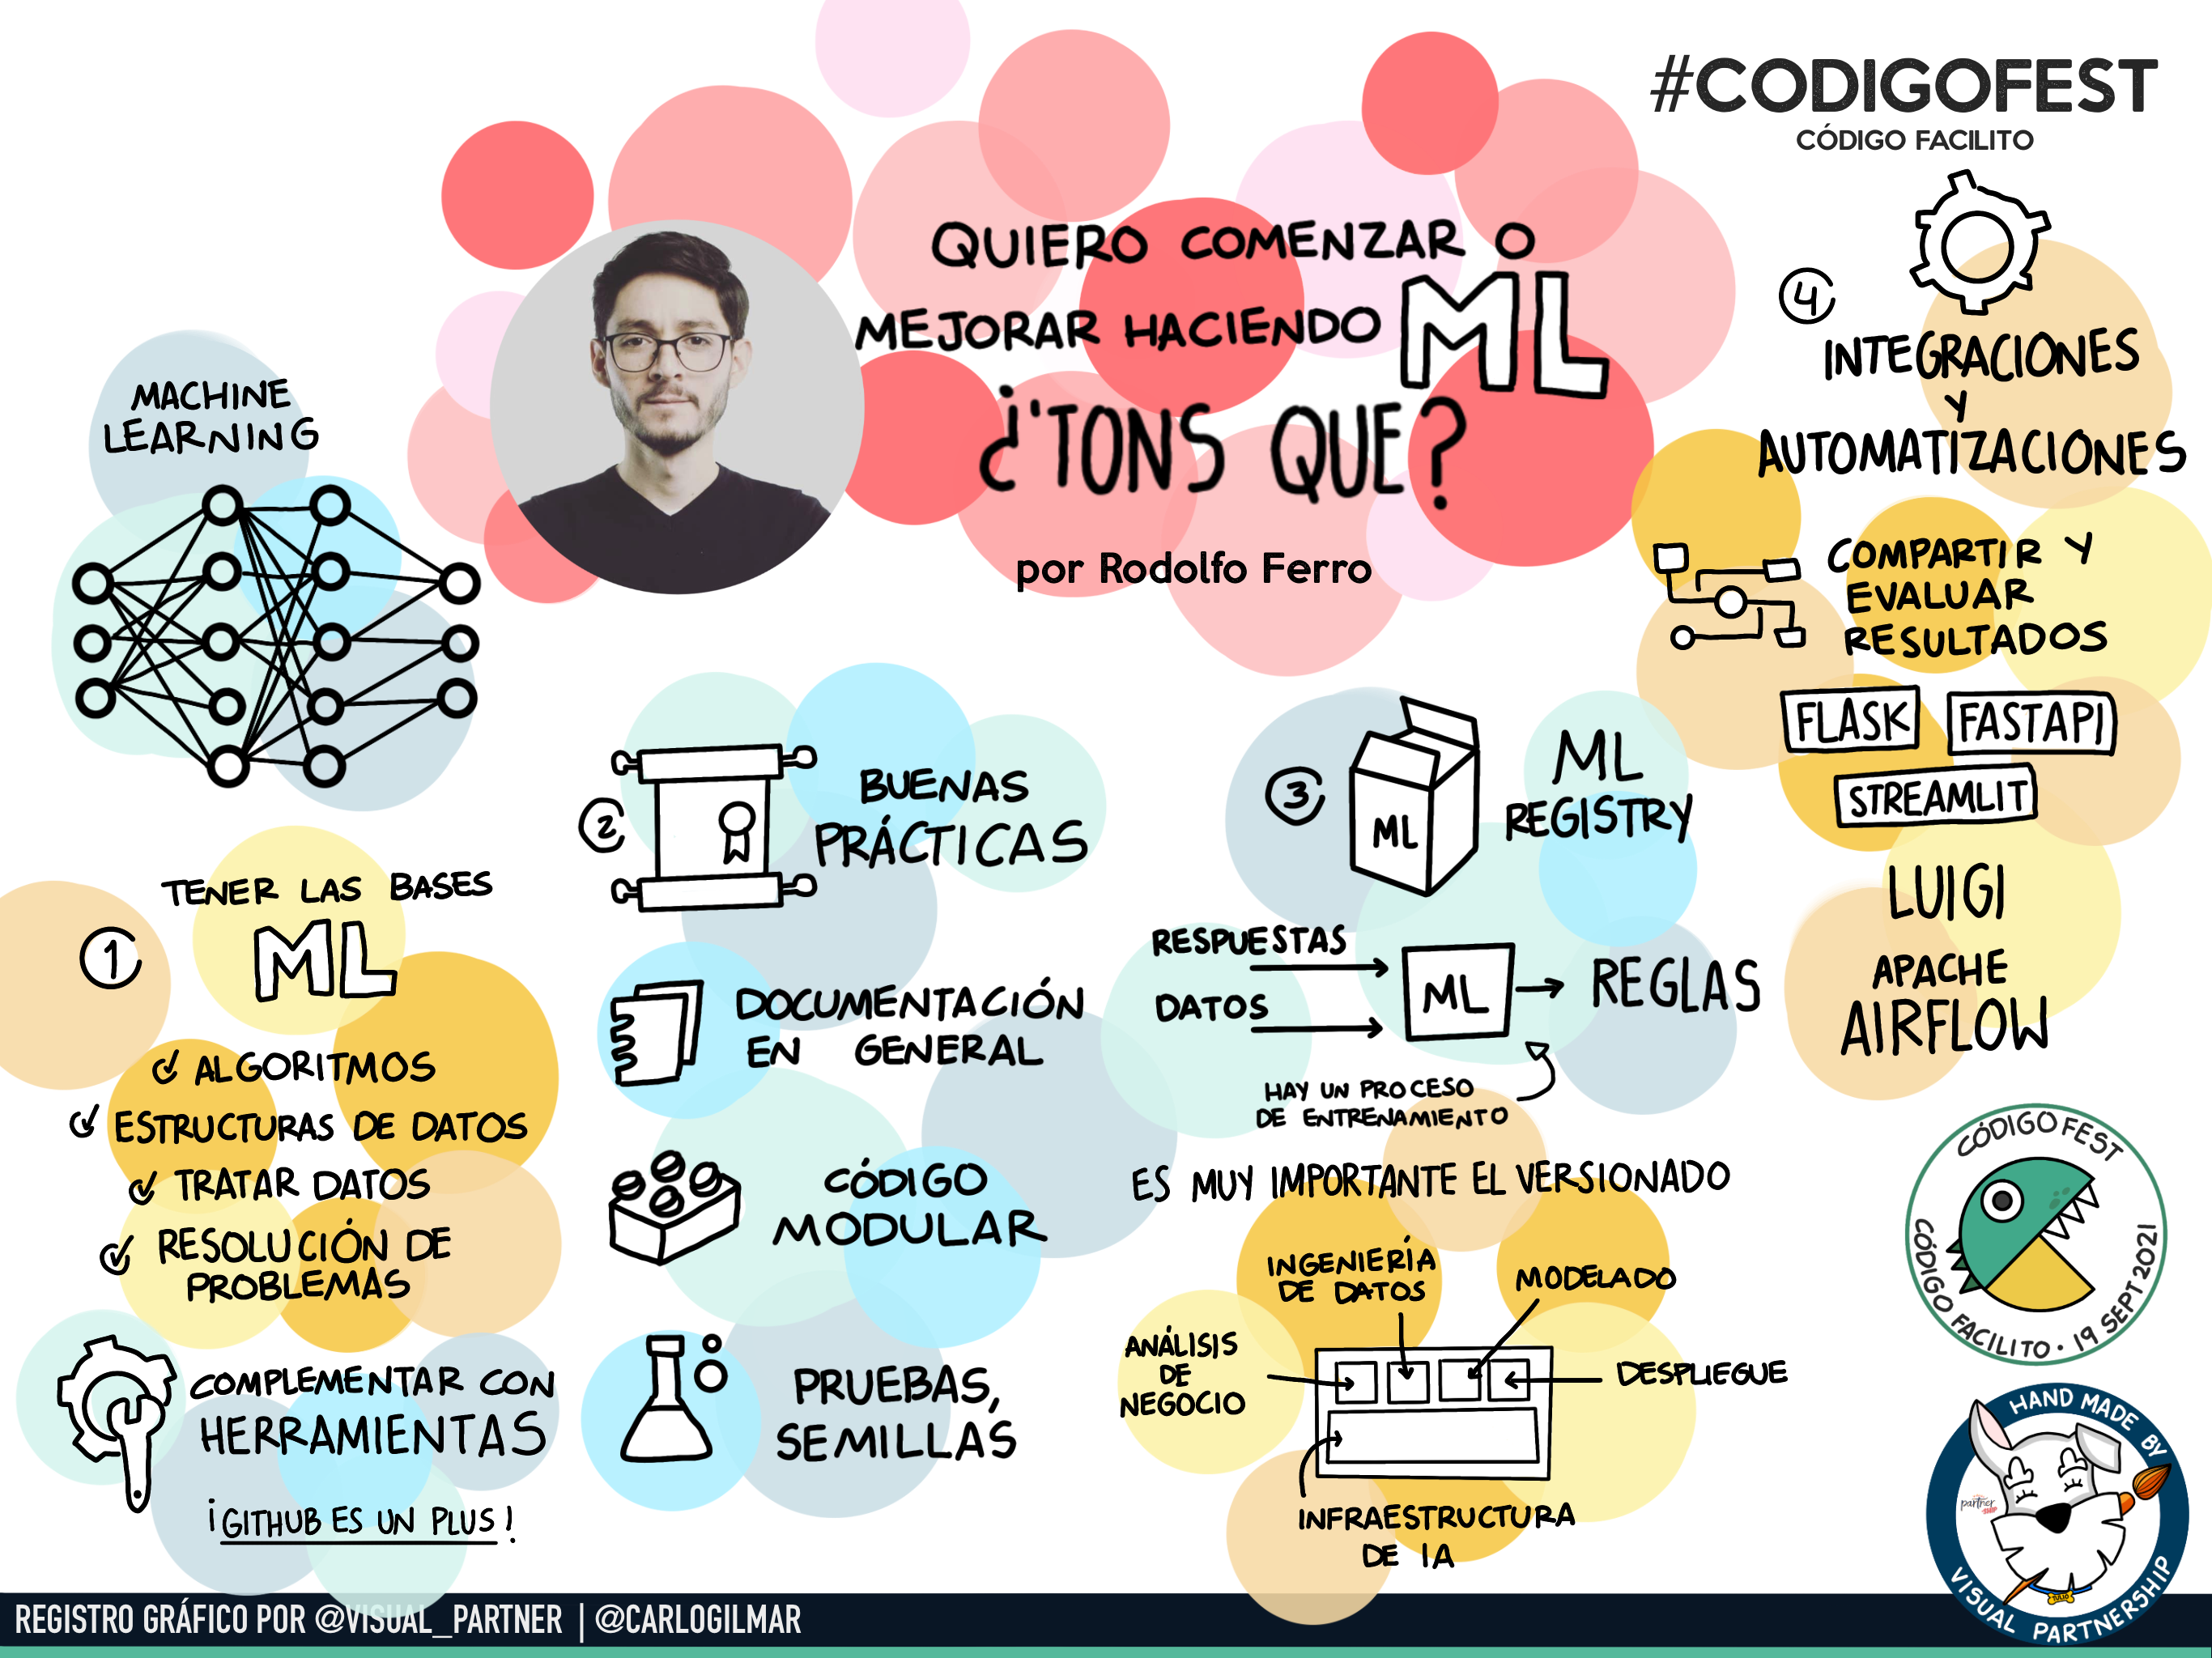 #CODIGOFEST
CÓDIGO FACILITO
QUIERO COMENZAR O
MEJORAR HACIENDO ML
¿'TONS QUE?
por Rodolfo Ferro
MACHINE
LEARNING
1
TENER LAS BASES
ML
ALGORITMOS
ESTRUCTURAS DE DATOS
TRATAR DATOS
RESOLUCIÓN DE
PROBLEMAS
COMPLEMENTAR CON
HERRAMIENTAS
¡GITHUB ES UN PLUS!
2
BUENAS
PRÁCTICAS
DOCUMENTACIÓN
EN GENERAL
CÓDIGO
MODULAR
PRUEBAS,
SEMILLAS
3
ML
ML
REGISTRY
RESPUESTAS
DATOS
ML
REGLAS
HAY UN PROCESO
DE ENTRENAMIENTO
ES MUY IMPORTANTE EL VERSIONADO
INGENIERÍA
DE DATOS
MODELADO
ANÁLISIS
DE
NEGOCIO
DESPLIEGUE
INFRAESTRUCTURA
DE IA
4
INTEGRACIONES
Y
AUTOMATIZACIONES
COMPARTIR Y
EVALUAR
RESULTADOS
FLASK
FASTAPI
STREAMLIT
LUIGI
APACHE
AIRFLOW
CÓDIGO FEST
CÓDIGO FACILITO • 19 SEPT 2021
HAND MADE BY
partner
VISUAL PARTNERSHIP
REGISTRO GRÁFICO POR @VISUAL_PARTNER | @CARLOGILMAR